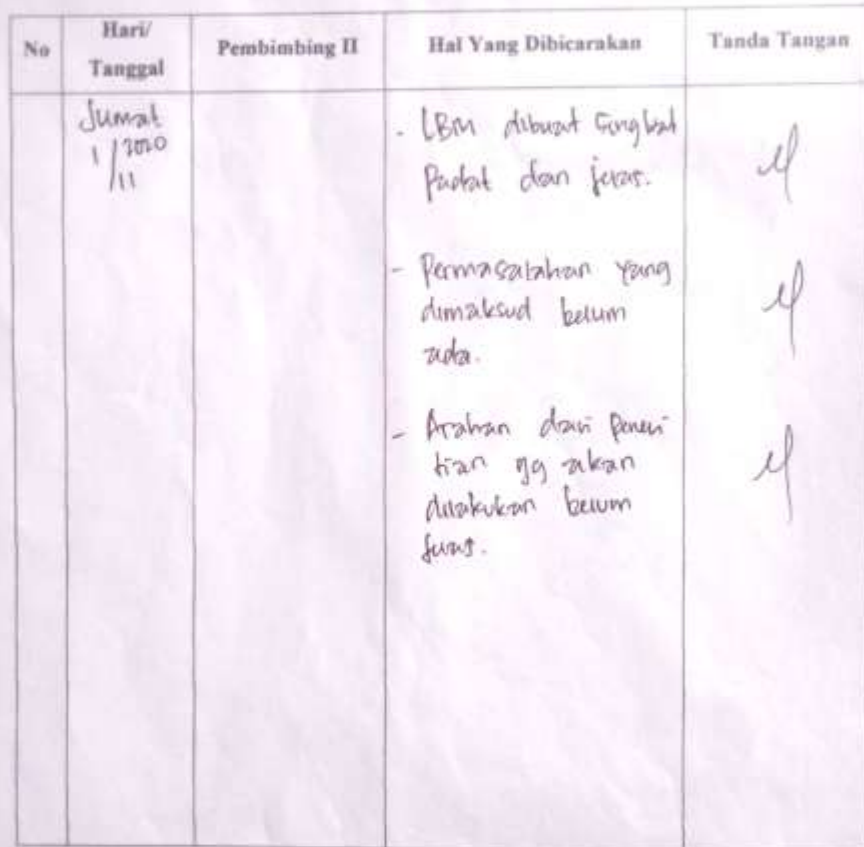 No Hari/ Tanggal Pembimbing II Hal Yang Dibicarakan Tanda Tangan
Jumat
1/2020
/11
- LBM dibuat singkat
padat dan jelas.
- Permasalahan yang
dimaksud belum
ada.
- Arahan dari peneli
tian yg akan
dilakukan belum
jelas.